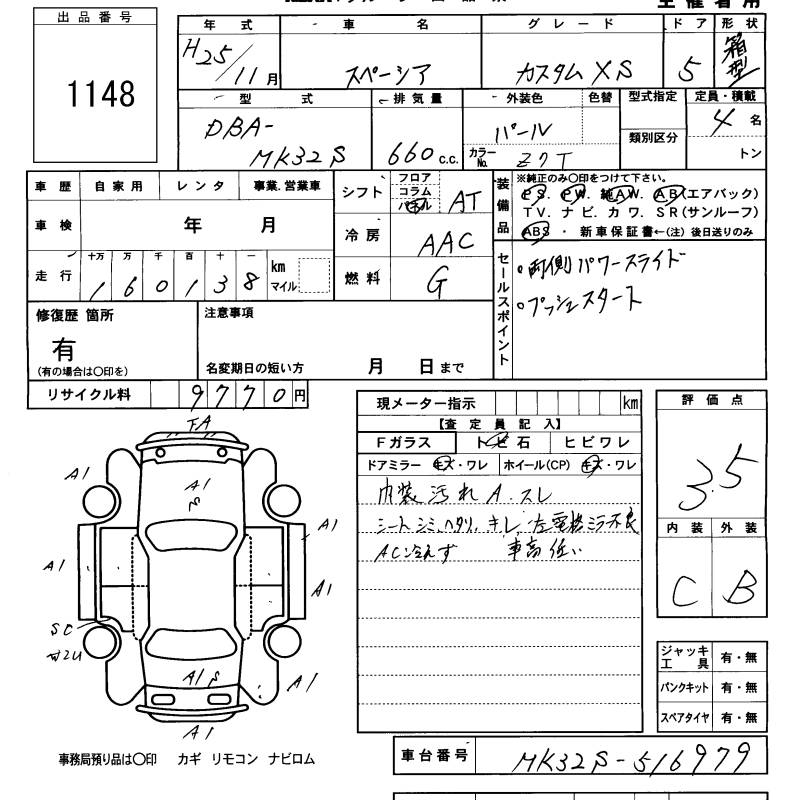 主催者用
出品番号
1148
年式 車名 グレード ドア 形状
H25/11月 スペーシア カスタム XS 5 箱型
型式 排気量 外装色 色替 型式指定 定員・積載
DBA-
MK32S 660 C.C. パール 4名
カラーNo. Z7T 類別区分 トン
車歴 自家用 レンタ 事業.営業車
車検 年 月
走行 十万 万 千 百 十 一
160138 km マイル
シフト フロア コラム パネル AT
冷房 AAC
燃料 G
装備品
※純正のみ〇印をつけて下さい。
P S. P W. 純AW. A B(エアバック)
T V. ナ ビ. カ ワ. S R(サンルーフ)
ABS ・ 新車保証書←(注)後日送りのみ
セールスポイント
。両側パワースライド
。プッシュスタート
修復歴 箇所
有
(有の場合は〇印を)
注意事項
名変期日の短い方 月 日まで
リサイクル料 9770円
現メーター指示 km
【査定員記入】
Fガラス トビ石 ヒビワレ
ドアミラー キズ・ワレ ホイール(CP) キズ・ワレ
内装汚れ A.スレ
シートシミ、ヘタリ、キレ、左電格ミラー不良
AC冷えず 車高低い
評価点
3.5
内装 外装
C B
FA
A1
A1
S
A1
A1
A1
SC
A1 S
A1
A1
ジャッキ工具 有・無
パンクキット 有・無
スペアタイヤ 有・無
事務局預り品は〇印 カギ リモコン ナビロム
車台番号 MK32S-516979